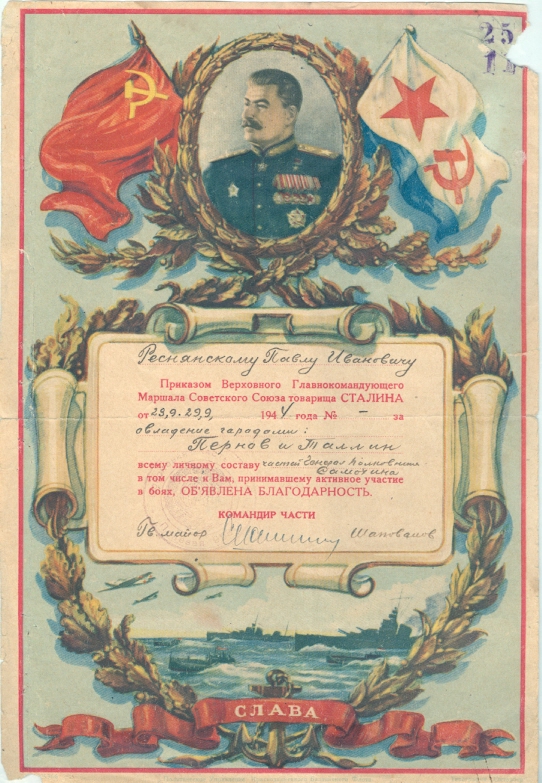 25
11
Реснянскому Павлу Ивановичу
Приказом Верховного Главнокомандующего
Маршала Советского Союза товарища СТАЛИНА
от 23,9-29,9, 1944 года № – за
овладение городами:
Пернов и Таллин
всему личному составу частей Полковника
Самохина
в том числе и Вам, принимавшему активное участие
в боях, ОБ'ЯВЛЕНА БЛАГОДАРНОСТЬ.
КОМАНДИР ЧАСТИ
Гв. майор Шаповалов
СЛАВА